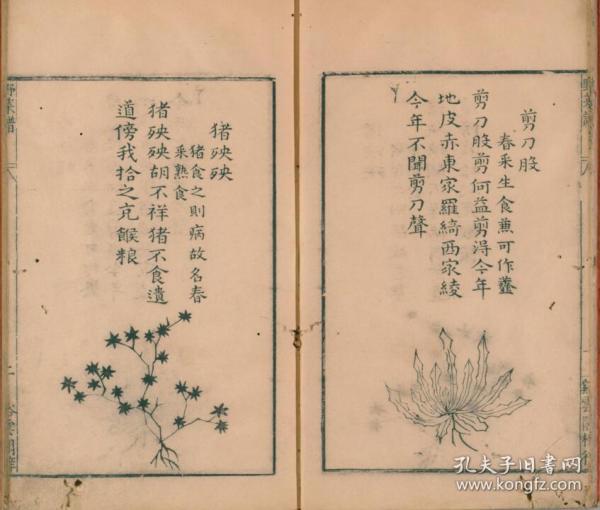 剪刀股
春采生食兼可作虀
剪刀股剪何益剪得今年
地皮赤東家羅綺西家綾
今年不聞剪刀聲
猪殃殃
猪食之則病故名春
采熟食
猪殃殃胡不祥猪不食遺
道傍我拾之充餱粮
野菜譜
孔夫子旧書网
www.kongfz.com